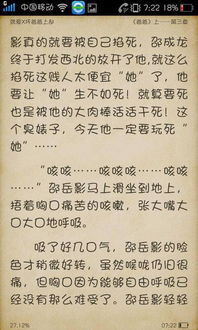 中国移动 7:22 上午
《爸爸》上——第三章
影真的就要被自己掐死，邵成龙
终于打发西北的放开了他，就这么
掐死这贱人太便宜“她”了，他
要让“她”生不如死！就算要死
也是被他的大肉棒活活干死！这
个臭婊子，今天他一定要玩死“
她”……
“咳咳……咳咳咳……咳咳
……”邵岳影马上滑坐到地上，
捂着胸口痛苦的咳嗽，张大嘴大
口大口地呼吸。
吸了好几口气，邵岳影的脸
色才稍微好转，虽然喉咙仍旧很
痛，但胸口因为能够自由呼吸已
经没有那么难受了。邵岳影轻轻
27.12%
07:22